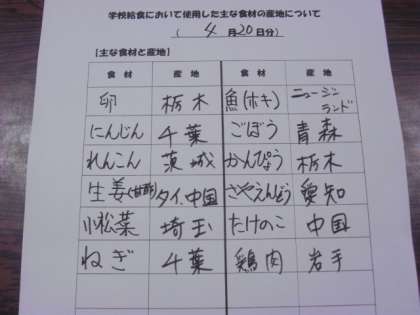 学校給食において使用した主な食材の産地について
( 4月20日分)
【主な食材と産地】
食材 産地 食材 産地
卵 栃木 魚(ホキ) ニュージーランド
にんじん 千葉 ごぼう 青森
れんこん 茨城 かんぴょう 栃木
生姜(甘酢) タイ、中国 さやえんどう 愛知
小松菜 埼玉 たけのこ 中国
ねぎ 千葉 鶏肉 岩手